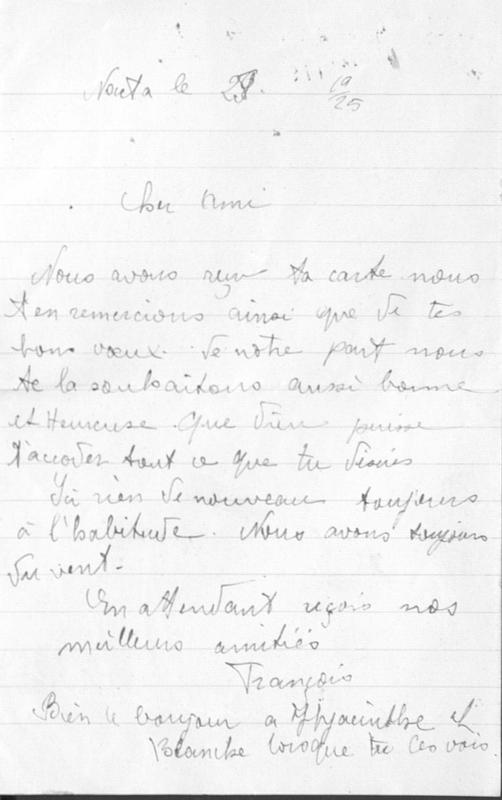 Nouta le 28. 19/25
Cher Ami
Nous avons reçu ta carte nous
t'en remercions ainsi que de tes
bons vœux. De notre part nous
te la souhaitons aussi bonne
et Heureuse. Que Dieu puisse
t'accoder tout ce que tu désires
Ici rien de nouveau toujours
à l'habitude. Nous avons toujours
du vent.
En attendant reçois nos
meilleurs amitiés
François
Bien le bonjour a Hyacinthe et
Blanche lorsque tu les vois.